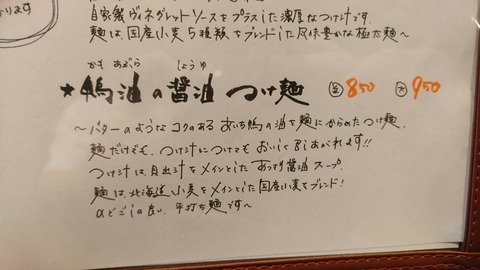 ります
自家製ヴィネグレットソースをプラスした濃厚なつけ汁です。
麺は、国産小麦5種類をブレンドした風味豊かな極太麺〜
かも あぶら しょうゆ
★鴨油の醤油つけ麺 並850 大950
〜バターのようなコクのある あいち鴨の油を麺にからめたつけ麺。
麺だけでも、つけ汁につけても おいしく召しあがれます!!
つけ汁は魚出汁をメインとした あっさり醤油スープ。
麺は北海道小麦をメインとした国産小麦をブレンド!
のどごしの良い、平打ち麺です〜